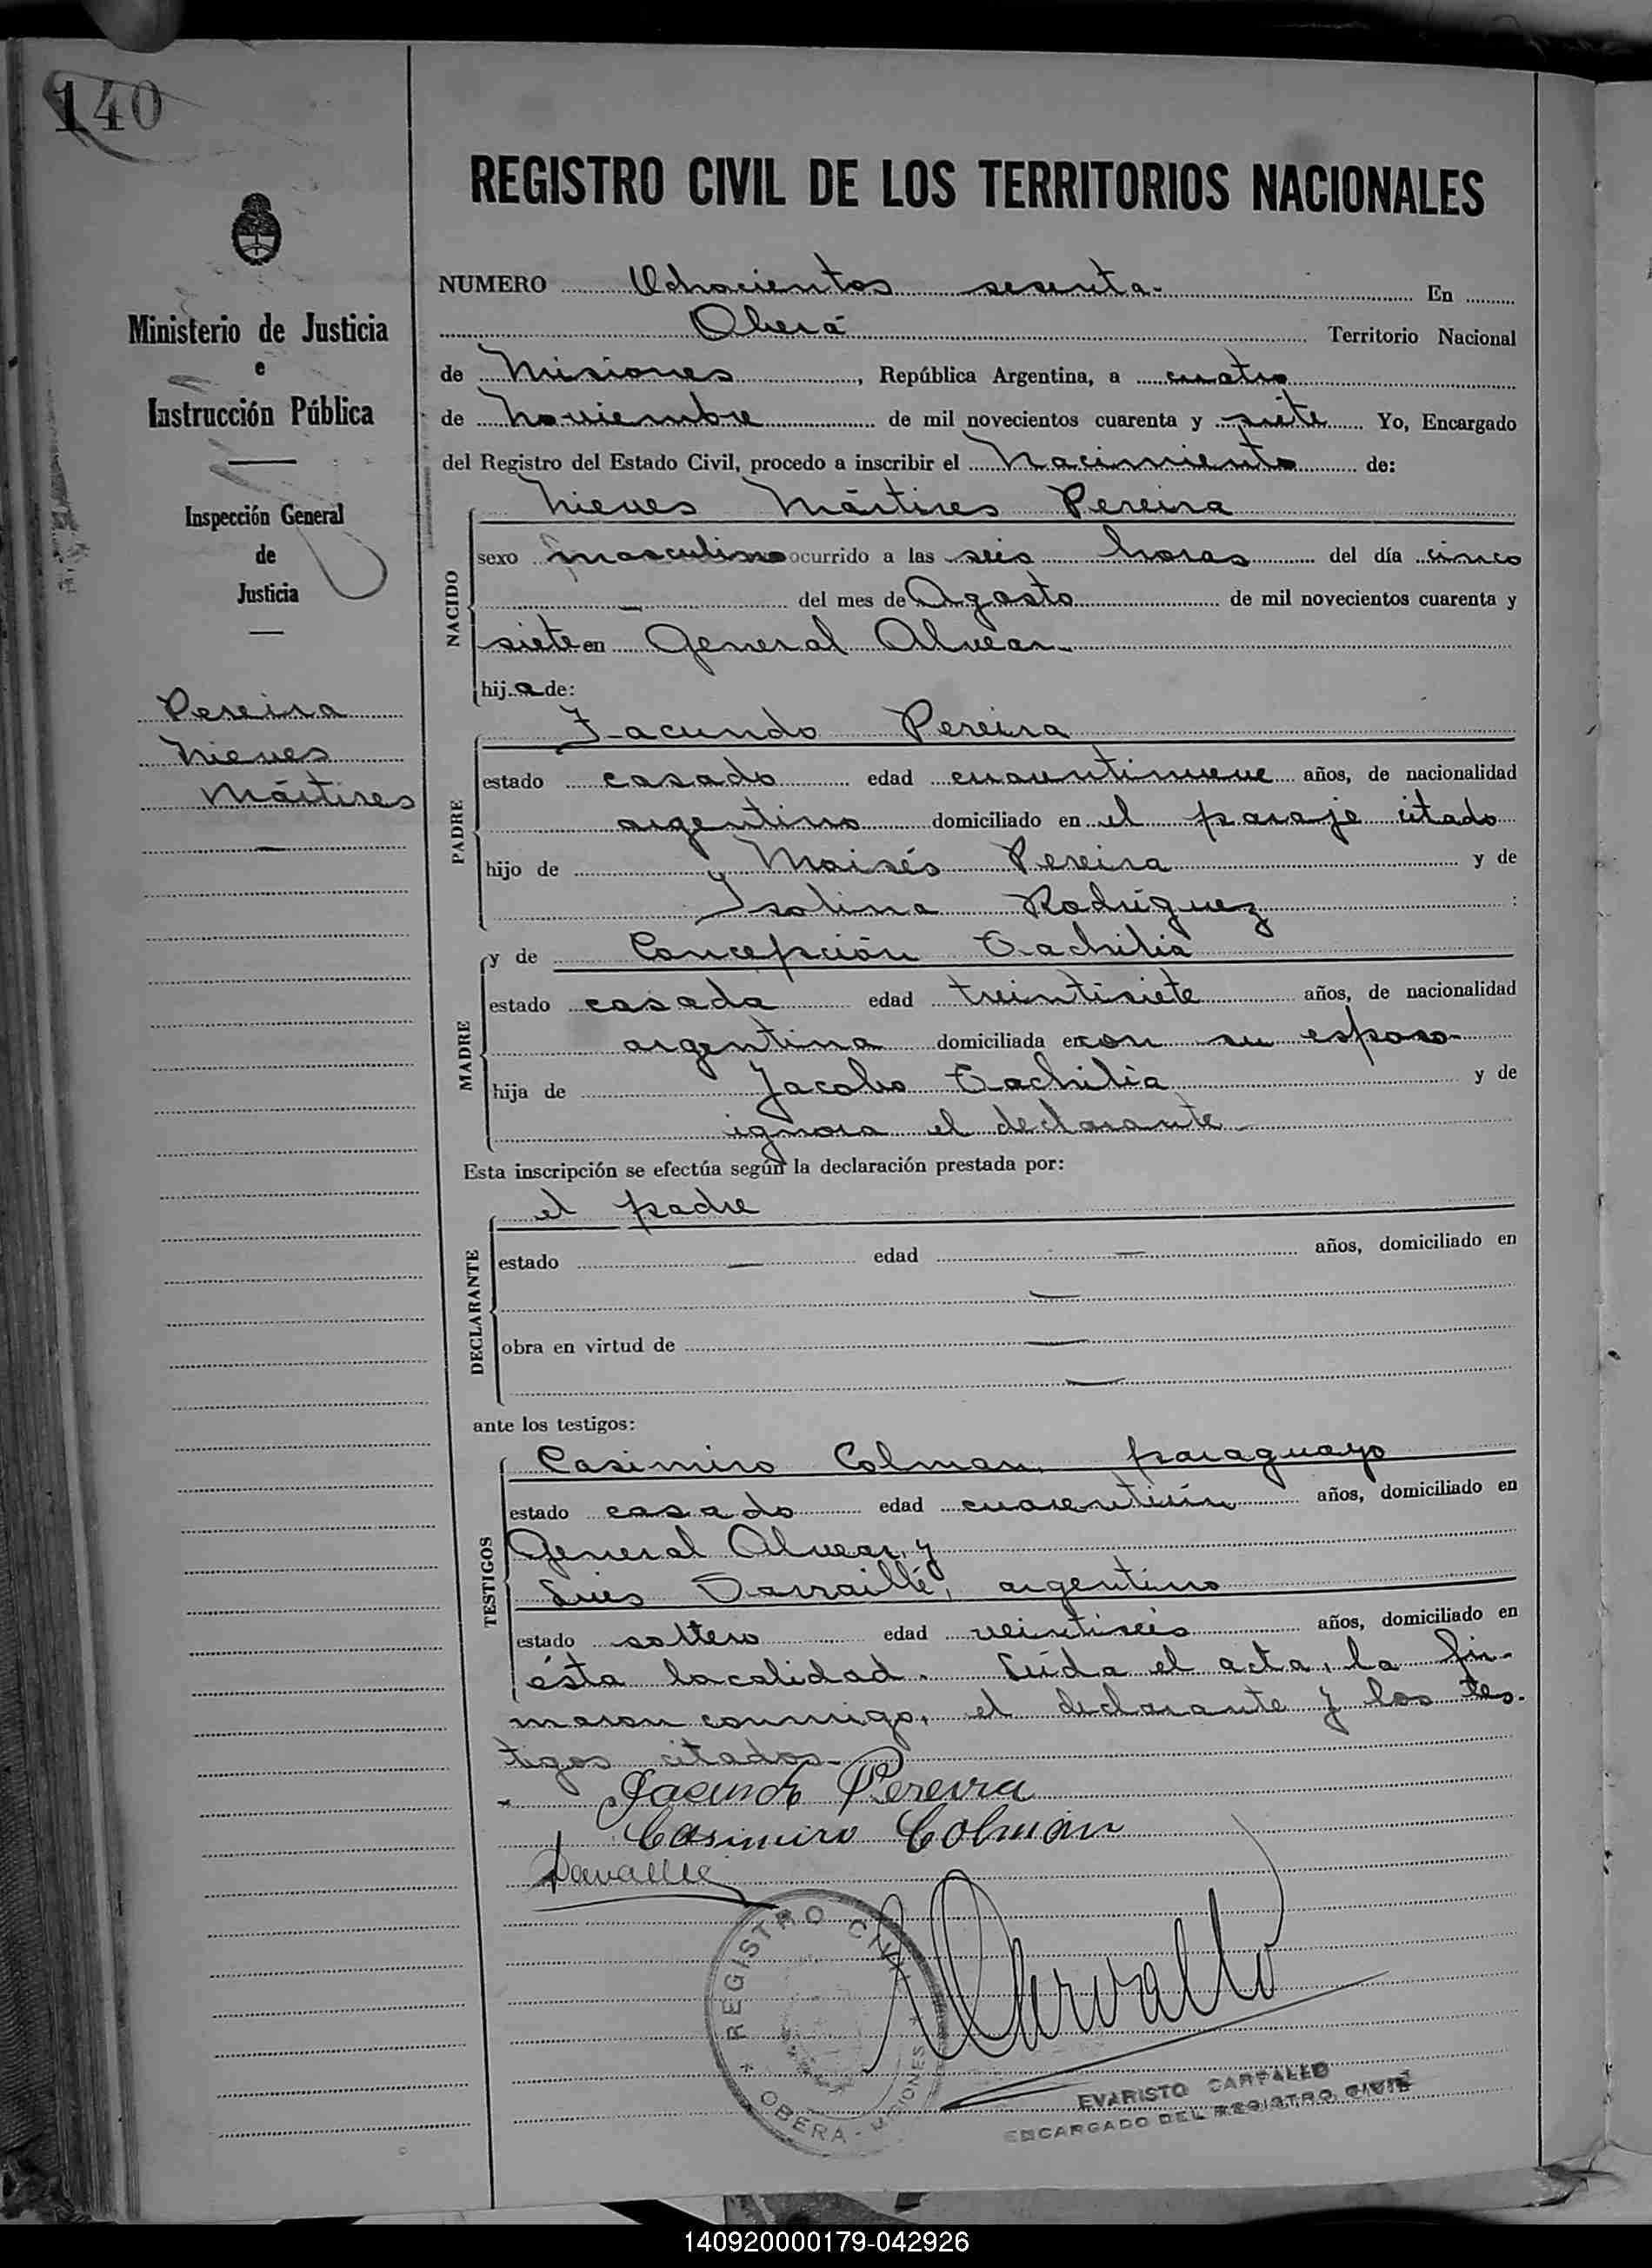 140
REGISTRO CIVIL DE LOS TERRITORIOS NACIONALES
Ministerio de Justicia
e
Instrucción Pública
Inspección General
de
Justicia
Pereira
Nieves
Mártires
NUMERO Ochocientos sesenta.- En
Oberá Territorio Nacional
de Misiones, República Argentina, a cuatro
de Noviembre de mil novecientos cuarenta y siete Yo, Encargado
del Registro del Estado Civil, procedo a inscribir el Nacimiento de:
NACIDO
Nieves Mártires Pereira
sexo masculino ocurrido a las seis horas del día cinco
del mes de Agosto de mil novecientos cuarenta y
siete en General Alvear.-
hij.o de:
PADRE
Facundo Pereira
estado casado edad cuarentinueve años, de nacionalidad
argentino domiciliado en el paraje citado
hijo de Moisés Pereira y de
Isolina Rodríguez :
MADRE
y de Concepción
estado casada edad treintisiete años, de nacionalidad
argentina domiciliada en con su esposo-
hija de Jacobo y de
ignora el declarante.-
Esta inscripción se efectúa según la declaración prestada por:
DECLARANTE
el padre
estado — edad — años, domiciliado en
—
obra en virtud de —
—
ante los testigos:
TESTIGOS
Casimiro Colman, paraguayo
estado casado edad cuarentiún años, domiciliado en
General Alvear, y
Luis Darraillé, argentino
estado soltero edad veintiseis años, domiciliado en
ésta localidad. Leída el acta, la fir-
maron conmigo, el declarante y los tes-
tigos citados.-
Facundo Pereira
Casimiro Colman
REGISTRO CIVIL
* OBERA - MISIONES *
Carvallo
EVARISTO CARVALLO
ENCARGADO DEL REGISTRO CIVIL
140920000179-042926